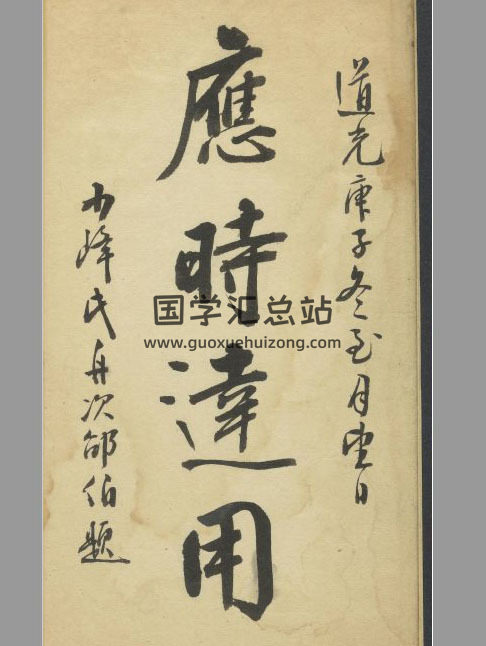 道光庚子冬至月望日
應時達用
少峰氏舟次邰伯題
国学汇总站
www.guoxuehuizong.com